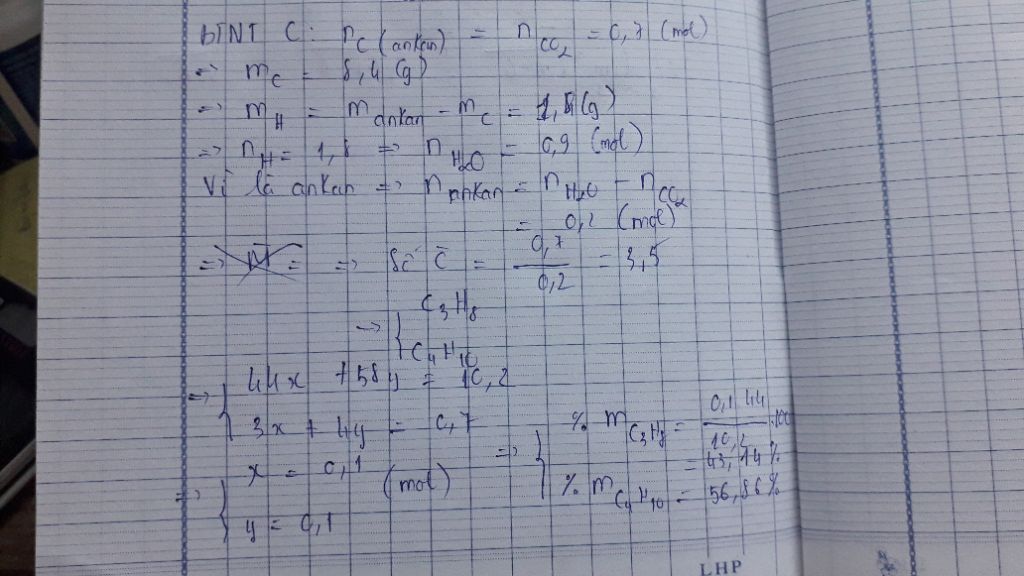 btNT C: n C (ankan) = n CO2 = 0,7 (mol)
=> m C = 8,4 (g)
=> m H = m ankan - m C = 1,8 (g)
=> n H = 1,8 => n H2O = 0,9 (mol)
Vì là ankan => n ankan = n H2O - n CO2
= 0,2 (mol)
=> => Số C̄ = 0,7 / 0,2 = 3,5
=> { C3H8
C4H10
=> { 44x + 58y = 10,2
3x + 4y = 0,7
=> { x = 0,1
y = 0,1 (mol)
=> { % m C3H8 = 0,1 44 / 10,2 .100
= 43,14 %
% m C4H10 = 56,86 %
LHP